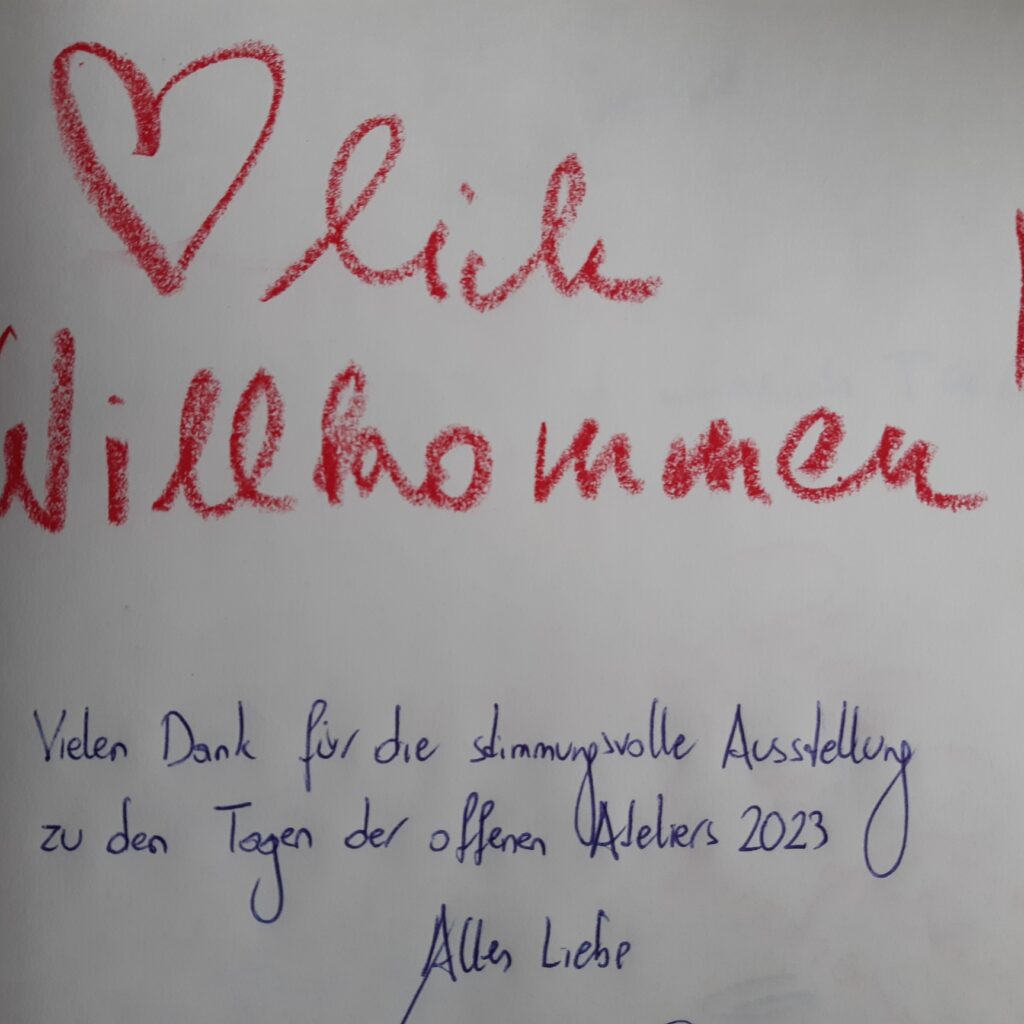 ♥lich
Willkommen
Vielen Dank für die stimmungsvolle Ausstellung
zu den Tagen der offenen Ateliers 2023
Alles Liebe